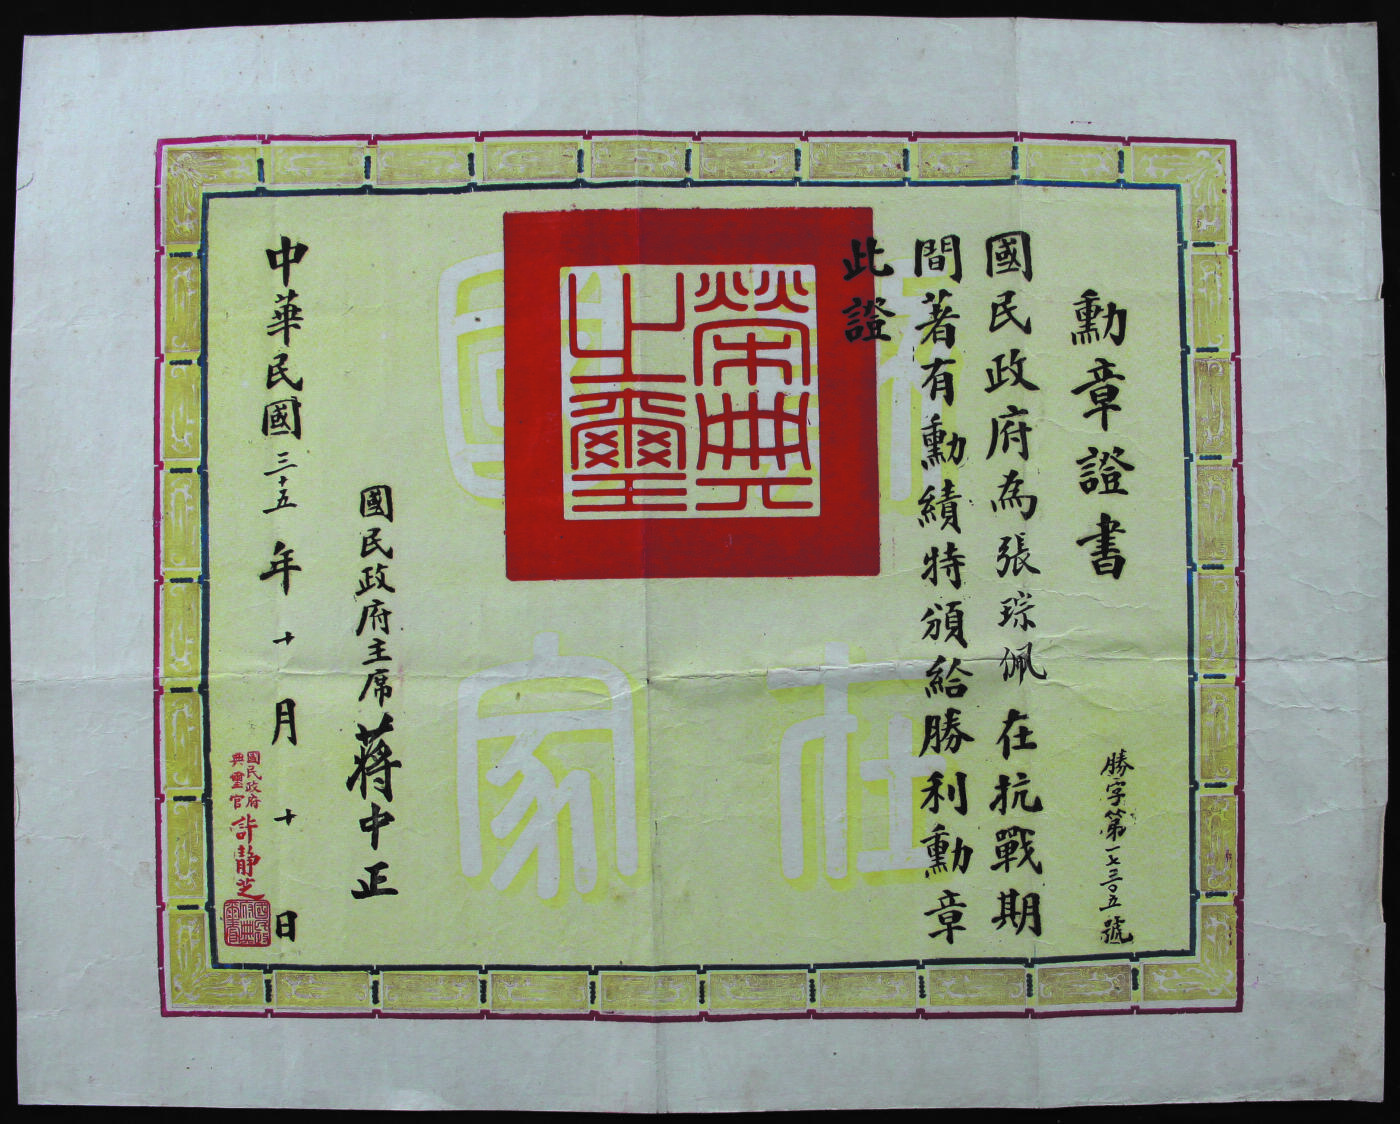 勳章證書
勝字第一七三〇五號
國民政府為張琮佩在抗戰期
間著有勳績特頒給勝利勳章
此證
榮典之璽
國民政府主席蔣中正
中華民國三十五年十月十日
國民政府
典璽官許靜芝
在
國家